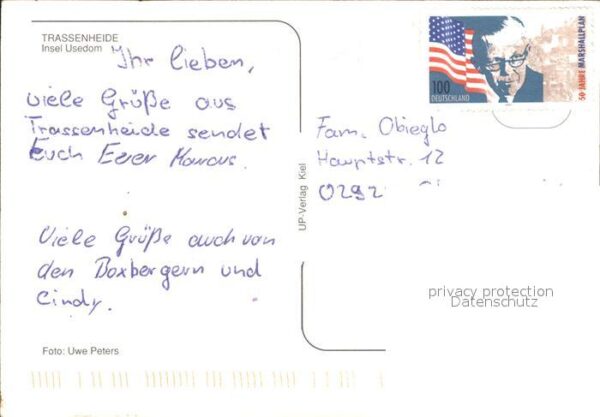 TRASSENHEIDE
Insel Usedom
Ihr lieben,
viele Grüße aus
Trassenheide sendet
Euch Euer Marcus.
Viele Grüße auch von
den Boxbergern und
Cindy.
Foto: Uwe Peters
UP-Verlag Kiel
100
DEUTSCHLAND
50 JAHRE MARSHALLPLAN
Fam. Obieglo
Hauptstr. 12
0292
privacy protection
Datenschutz